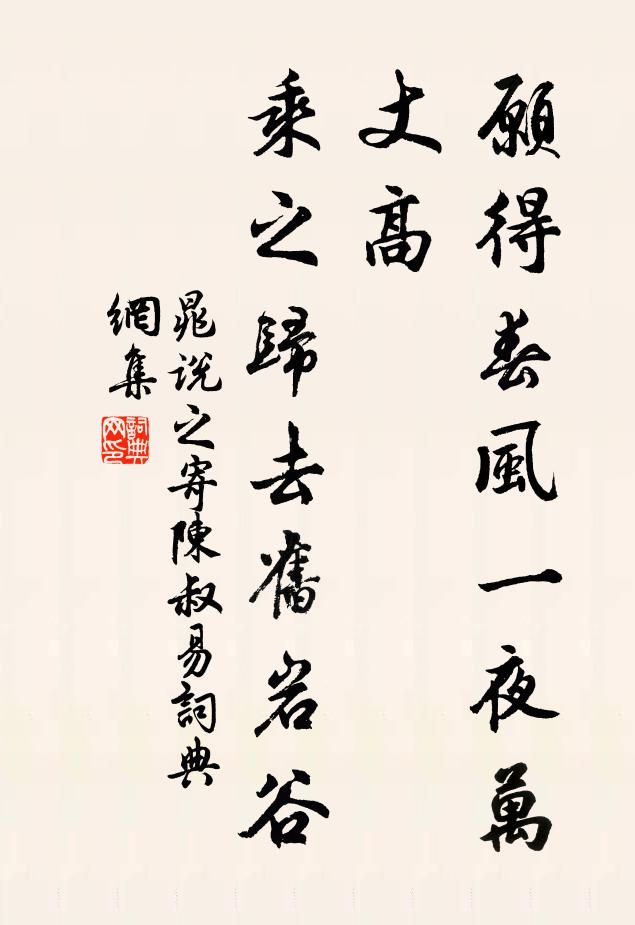 願得春風一夜萬
丈高
乘之歸去舊岩谷
晁說之寄陳叔易詞典
網集
詞典
网印